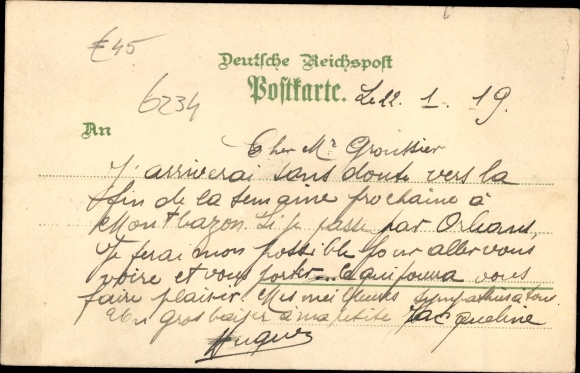 €45
6234
Deutsche Reichspost
Postkarte. Le 22. 1. 19.
An
Cher Mr Groussier
J'arriverai sans doute vers la
fin de la semaine prochaine à
Montbazon. Si je passe par Orléans,
je ferai mon possible pour aller vous
voire et vous porter ce qui pourra vous
faire plaisir. Mes meilleures sympathies à tous
Un gros baiser à ma petite Jacqueline
Hugues